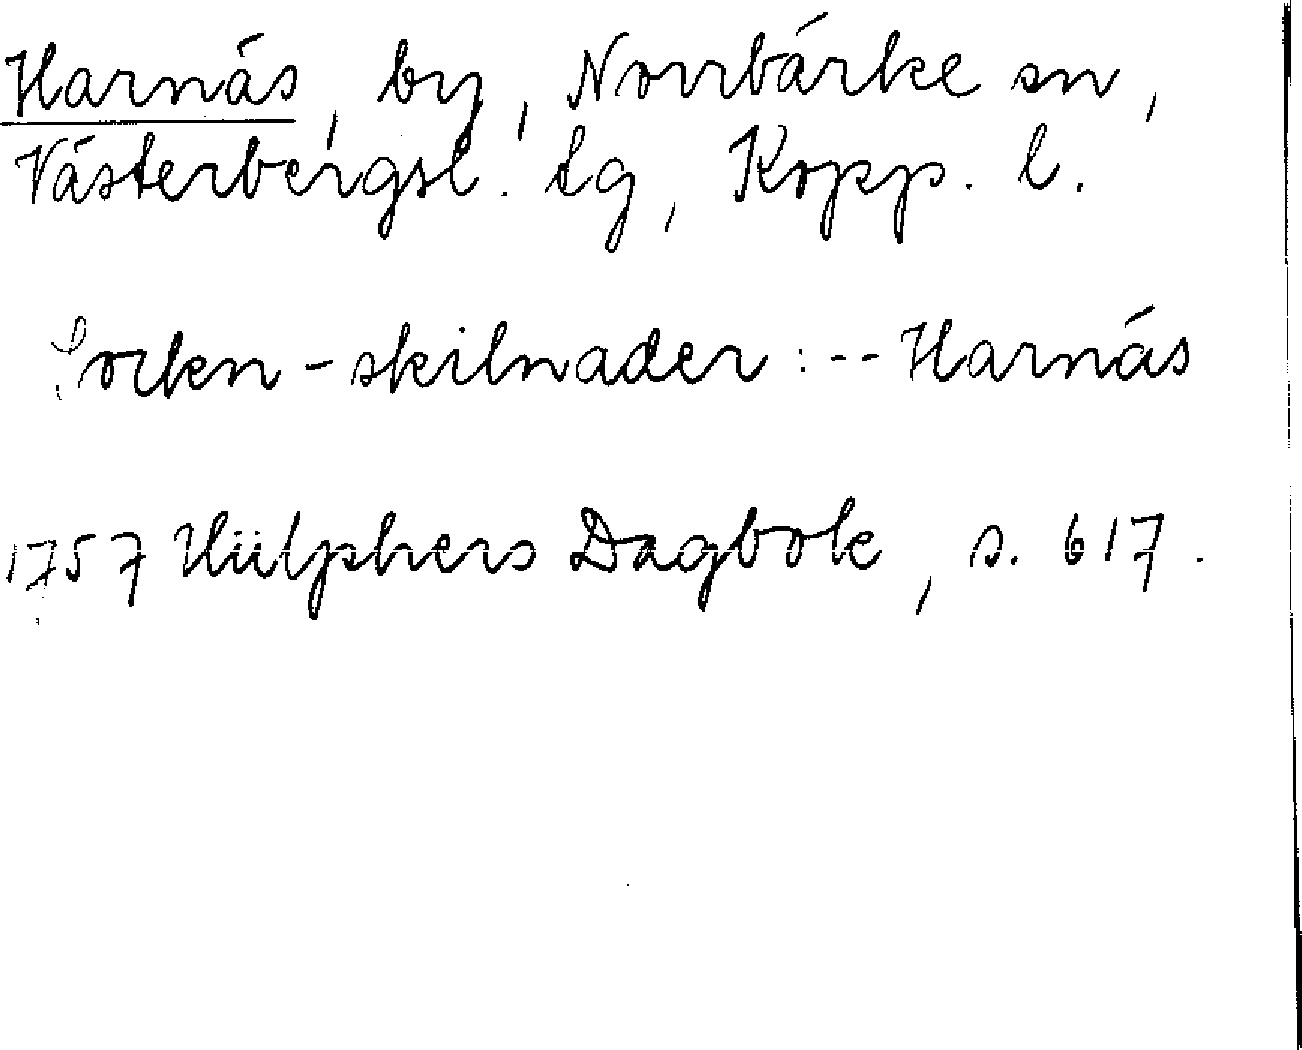 Harnäs, by, Norrbärke sn,
Västerbergsl. tg, Kopp. l.
Socken-skilnader: -- Harnäs
1757 Hülphers Dagbok, s. 617.